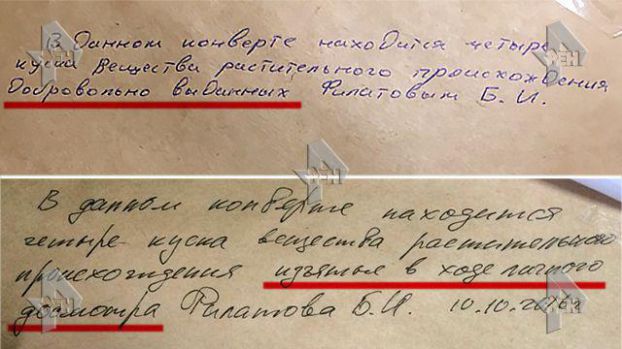 В данном конверте находится четыре
куска вещества растительного происхождения
добровольно выданных Филатовым Б. И.
В данном конверте находится
четыре куска вещества растительного
происхождения изъятые в ходе личного
досмотра Филатова Б.И. 10.10.2016г
РЕН
РЕН
РЕН
РЕН
РЕН